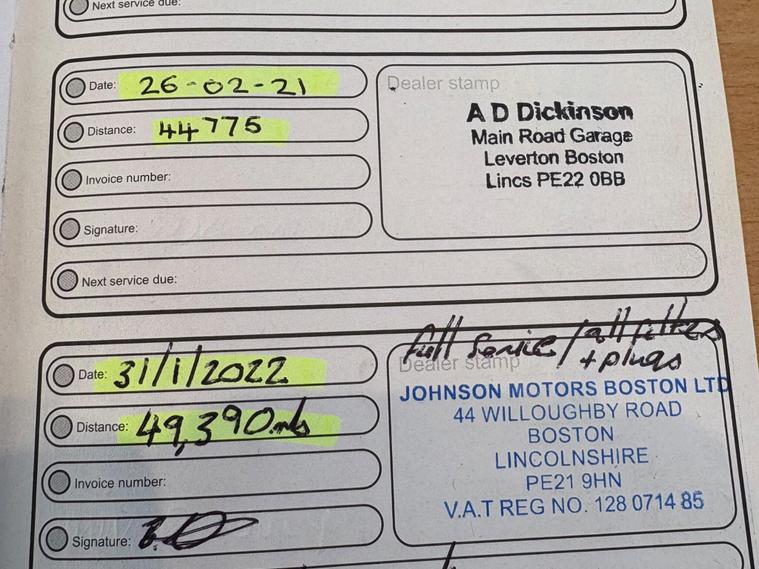 Next service due:
Date: 26-02-21
Distance: 44775
Invoice number:
Signature:
Next service due:
Dealer stamp
A D Dickinson
Main Road Garage
Leverton Boston
Lincs PE22 0BB
Date: 31/1/2022
Distance: 49,390mls
Invoice number:
Signature:
full Service / all filters
+ plugs
Dealer stamp
JOHNSON MOTORS BOSTON LTD
44 WILLOUGHBY ROAD
BOSTON
LINCOLNSHIRE
PE21 9HN
V.A.T REG NO. 128 0714 85